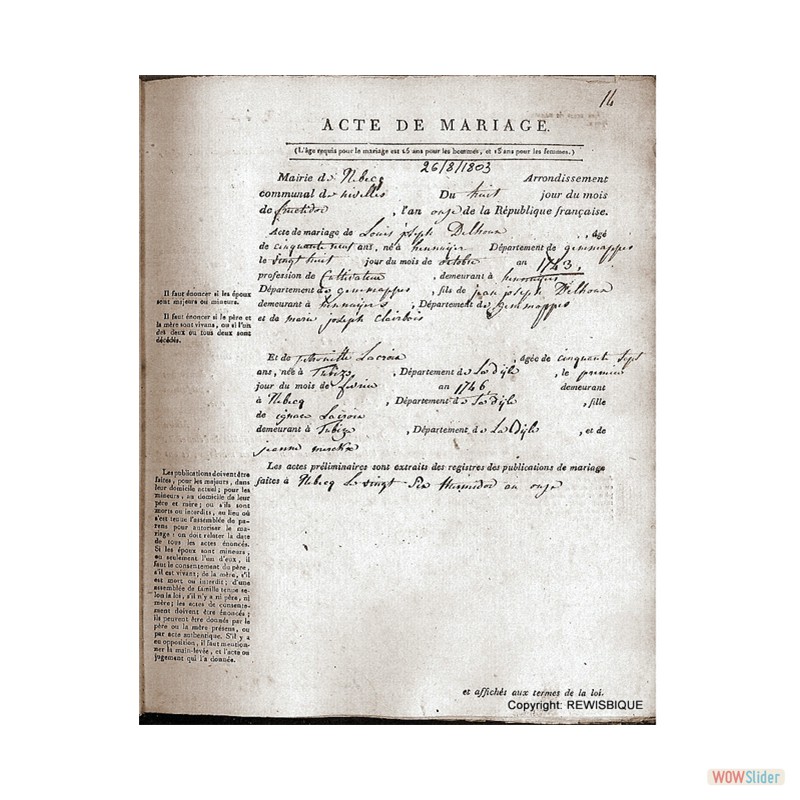 14
ACTE DE MARIAGE.
(L'âge requis pour le mariage est 15 ans pour les hommes, et 13 ans pour les femmes.)
26/8/1803
Mairie de Rebecq Arrondissement
communal de nivelles Du huit jour du mois
de fructidor , l'an onze de la République française.
Acte de mariage de Louis joseph Delhoux , âgé
de cinquante neuf ans, né à hennuyer Département de gemmappes
le vingt huit jour du mois de octobre an 1743,
profession de Cultivateur , demeurant à hennuyers
Département de gemmappes , fils de jean joseph Delhoux
demeurant à hennuyers , Département de Gemmappes
et de marie joseph Clairbois
Il faut énoncer si les époux
sont majeurs ou mineurs.
Il faut énoncer si le père et
la mère sont vivans, ou si l'un
des deux ou tous deux sont
décédés.
Et de petronille Lacroix , âgée de cinquante sept
ans, née à Tubize , Département de La dyle , le premier
jour du mois de fevrier an 1746 demeurant
à Rebecq , Département de La dyle , fille
de ignace Lacroix
demeurant à Tubize , Département de La Dyle , et de
jeanne
Les actes préliminaires sont extraits des registres des publications de mariage
faites à Rebecq Le vingt Six thermidor an onze
Les publications doivent être
faites, pour les majeurs, dans
leur domicile actuel; pour les
mineurs, au domicile de leur
père et mère; ou s'ils sont
morts ou interdits, au lieu où
s'est tenue l'assemblée de pa-
rens pour autoriser le ma-
riage: on doit relater la date
de tous les actes énoncés.
Si les époux sont mineurs,
ou seulement l'un d'eux, il
faut le consentement du père,
s'il est vivant; de la mère, s'il
est mort ou interdit; d'une
assemblée de famille tenue se-
lon la loi, s'il n'y a ni père, ni
mère; les actes de consente-
ment doivent être énoncés;
ils peuvent être donnés par le
père ou la mère présens, ou
par acte authentique. S'il y a
eu opposition, il faut mention-
ner la main-levée, et l'acte ou
jugement qui l'a donnée.
et affichés aux termes de la loi.
Copyright: REWISBIQUE
WOWSlider